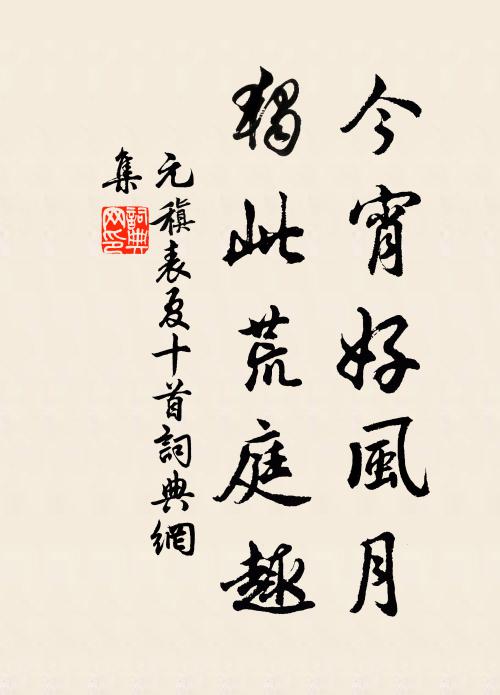 今宵好風月
獨此荒庭趣
元稹表夏十首詞典網
集
詞典網印